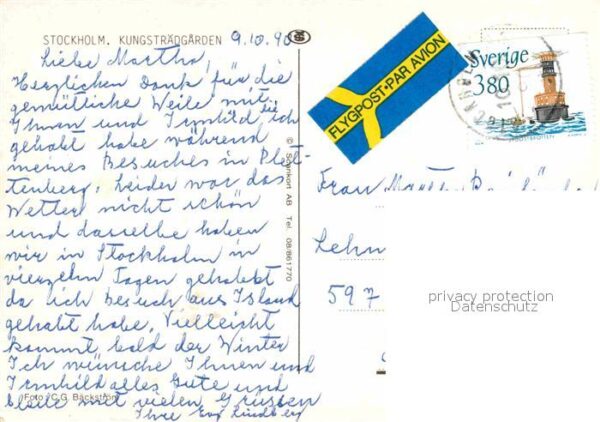 STOCKHOLM. KUNGSTRÄDGÅRDEN 9.10.90
Liebe Martha,
Herzlichen Dank für die
gemütliche Weile mit
Ihnen und Irmhild, die ich
gehabt habe während
meines Besuches in Plet-
tenberg. Leider war das
Wetter nicht schön
und dasselbe haben
wir in Stockholm in
vierzehn Tagen gehabt
da ich Besuch aus Island
gehabt habe. Vielleicht
kommt bald der Winter
Ich wünsche Ihnen und
Irmhild alles Gute und
bleibe mit vielen Grüssen
Ihre Lindberg
Foto: C.G. Bäckström
© Scankort AB Tel. 08/861770
FLYGPOST·PAR AVION
Sverige
380
Frau Martha
Lehn
597
privacy protection
Datenschutz